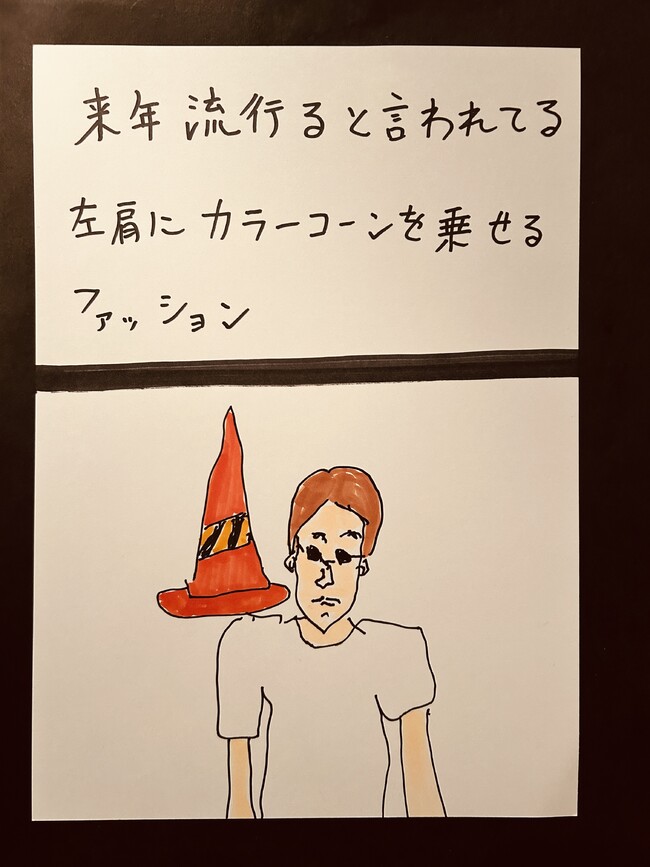 来年流行ると言われてる
左肩にカラーコーンを乗せる
ファッション